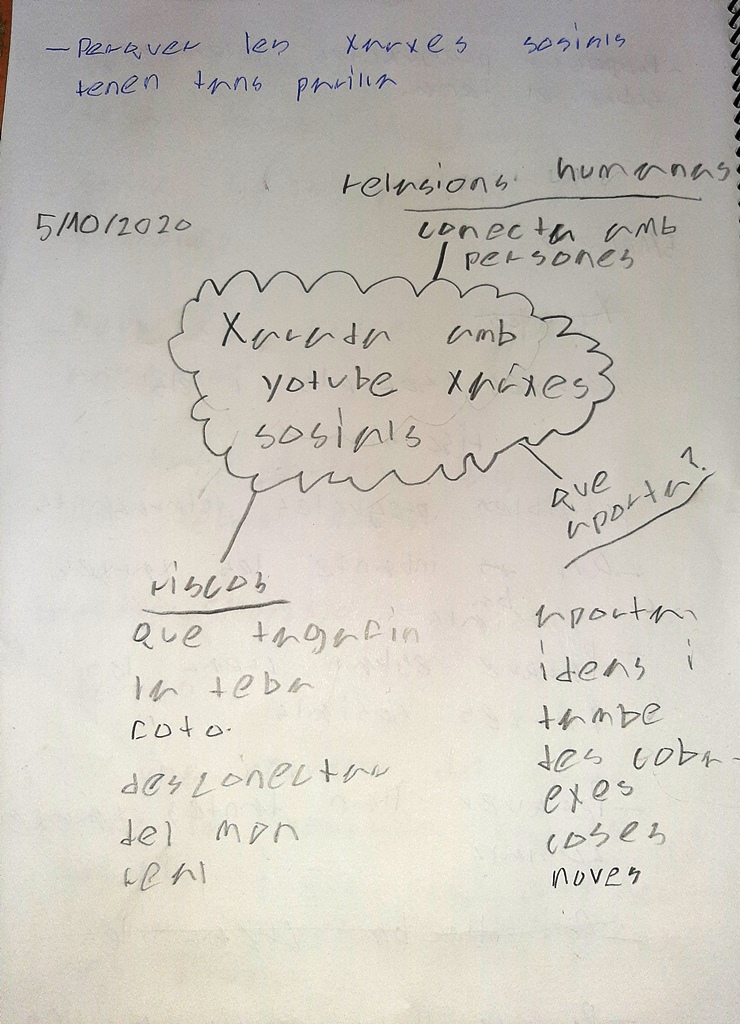 - Perquer les xarxes sosials
tenen tans parilla
relasions humanas
5/10/2020
conecta amb
persones
Xarrada amb
yotube xarxes
sosials
que
aporta?
riscos
que tagafin
la teba
foto.
desconectar
del mon
real
aportan
ideas i
tambe
des cobr-
exes
coses
noves